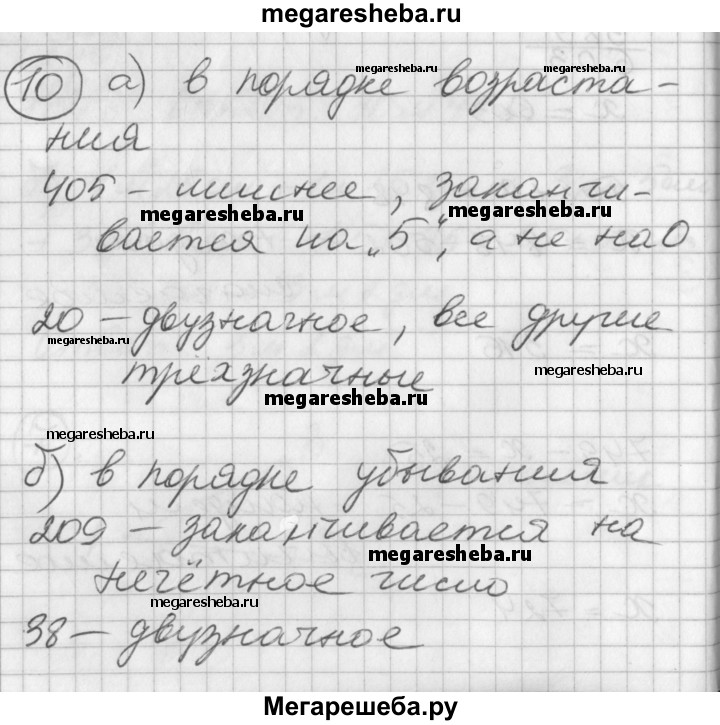 megaresheba.ru
10 а) в порядке возраста-
megaresheba.ru
ния
405 – лишнее, заканчи-
megaresheba.ru megaresheba.ru
вается на „5“, а не на 0
20 – двузначное, все другие
megaresheba.ru
трёхзначные
megaresheba.ru
megaresheba.ru
megaresheba.ru
б) в порядке убывания
209 – заканчивается на
megaresheba.ru
нечётное число
megaresheba.ru
38 – двузначное
Мегарешеба.ру